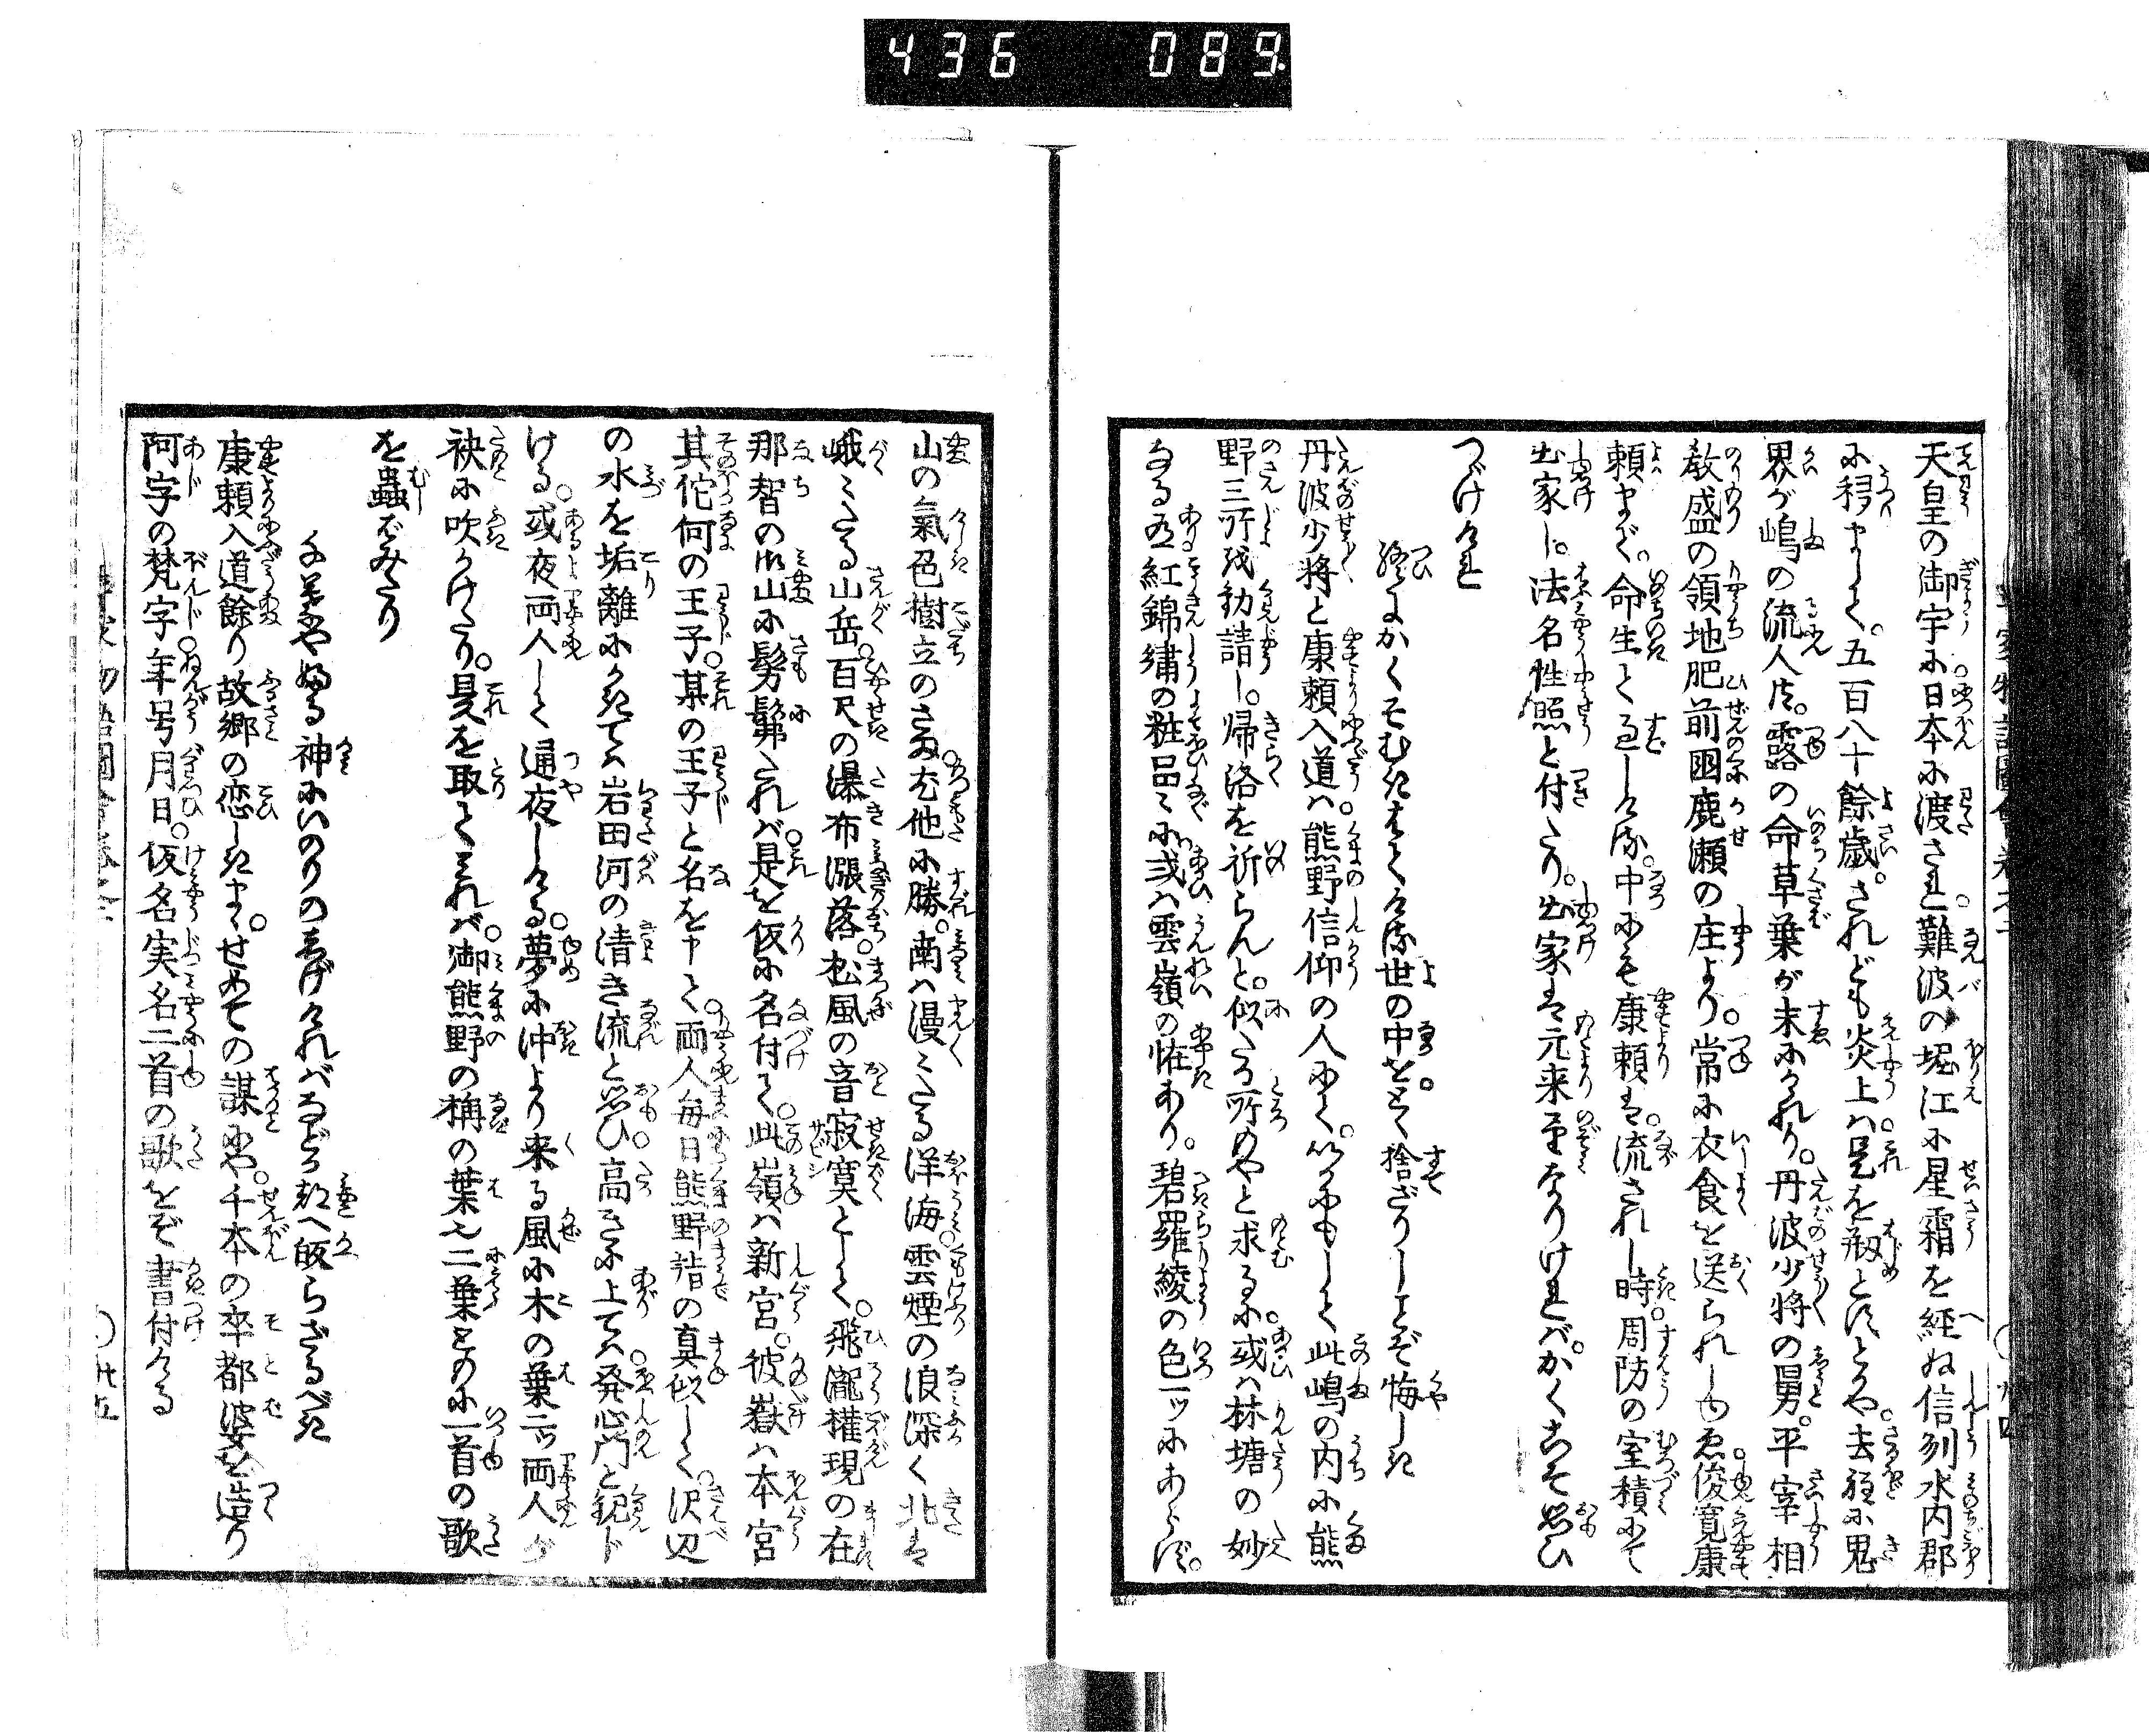 436 089
天皇の御宇に日本に渡され難波の堀江に星霜を経ぬ信列水内郡
に移まして五百八十餘歳。されども炎上は是を初とぞうや。去程に鬼
界が嶋の流人共。露の命草葉が末にかゝれり。丹波少将の舅。平宰相
教盛の領地肥前国鹿瀬の庄より。常に衣食を送られしゆゑ俊寛康
頼まで。命生て過しける。中にも康頼は。流されし時。周防の室積にて
出家し。法名性照と付たり。出家は元来望なりければ。かくこそ思ひ
つゞけゝれ
終にかくそむきはてける世の中をとく捨ざりしことぞ悔しき
丹波少将と康頼入道は。熊野信仰の人にて。いかにもして此嶋の内に熊
野三所を勧請し。帰洛を祈らんと。似たる所もやと求るに。或は林塘の妙
なる有紅錦繍の粧品々に。或は雲嶺の怪あり。碧羅綾の色一ッにあらず。
山の氣色樹立のさま。尤他に勝。南は漫々たる洋海雲煙の浪深く北は
峨々たる山岳。百尺の瀑布漲落。松風の音寂寞として。飛瀧権現の在
那智の御山に髣髴たれば。是を仮に名付て。此嶺は新宮。彼嶽は本宮
其佗何の王子。某の王子と名を申て。両人毎日熊野詣の真似して。沢辺
の水を垢離にかきては岩田河の清き流と思ひ。高きに上ては発心門と観ド
ける。或夜両人して通夜しける。夢に沖より来る風に木の葉二ッ両人が
袂に吹かけたり。是を取て見れば。御熊野の梛の葉也二葉ともに一首の歌
を蟲ばみたり
千早や振る神にいのりのしげゝればなどか都へ皈らざるべき
康頼入道餘り故郷の恋しきまゝ。せめての謀にや。千本の卒都婆を造り
阿字の梵字。年号月日。仮名実名二首の歌をぞ書付ける